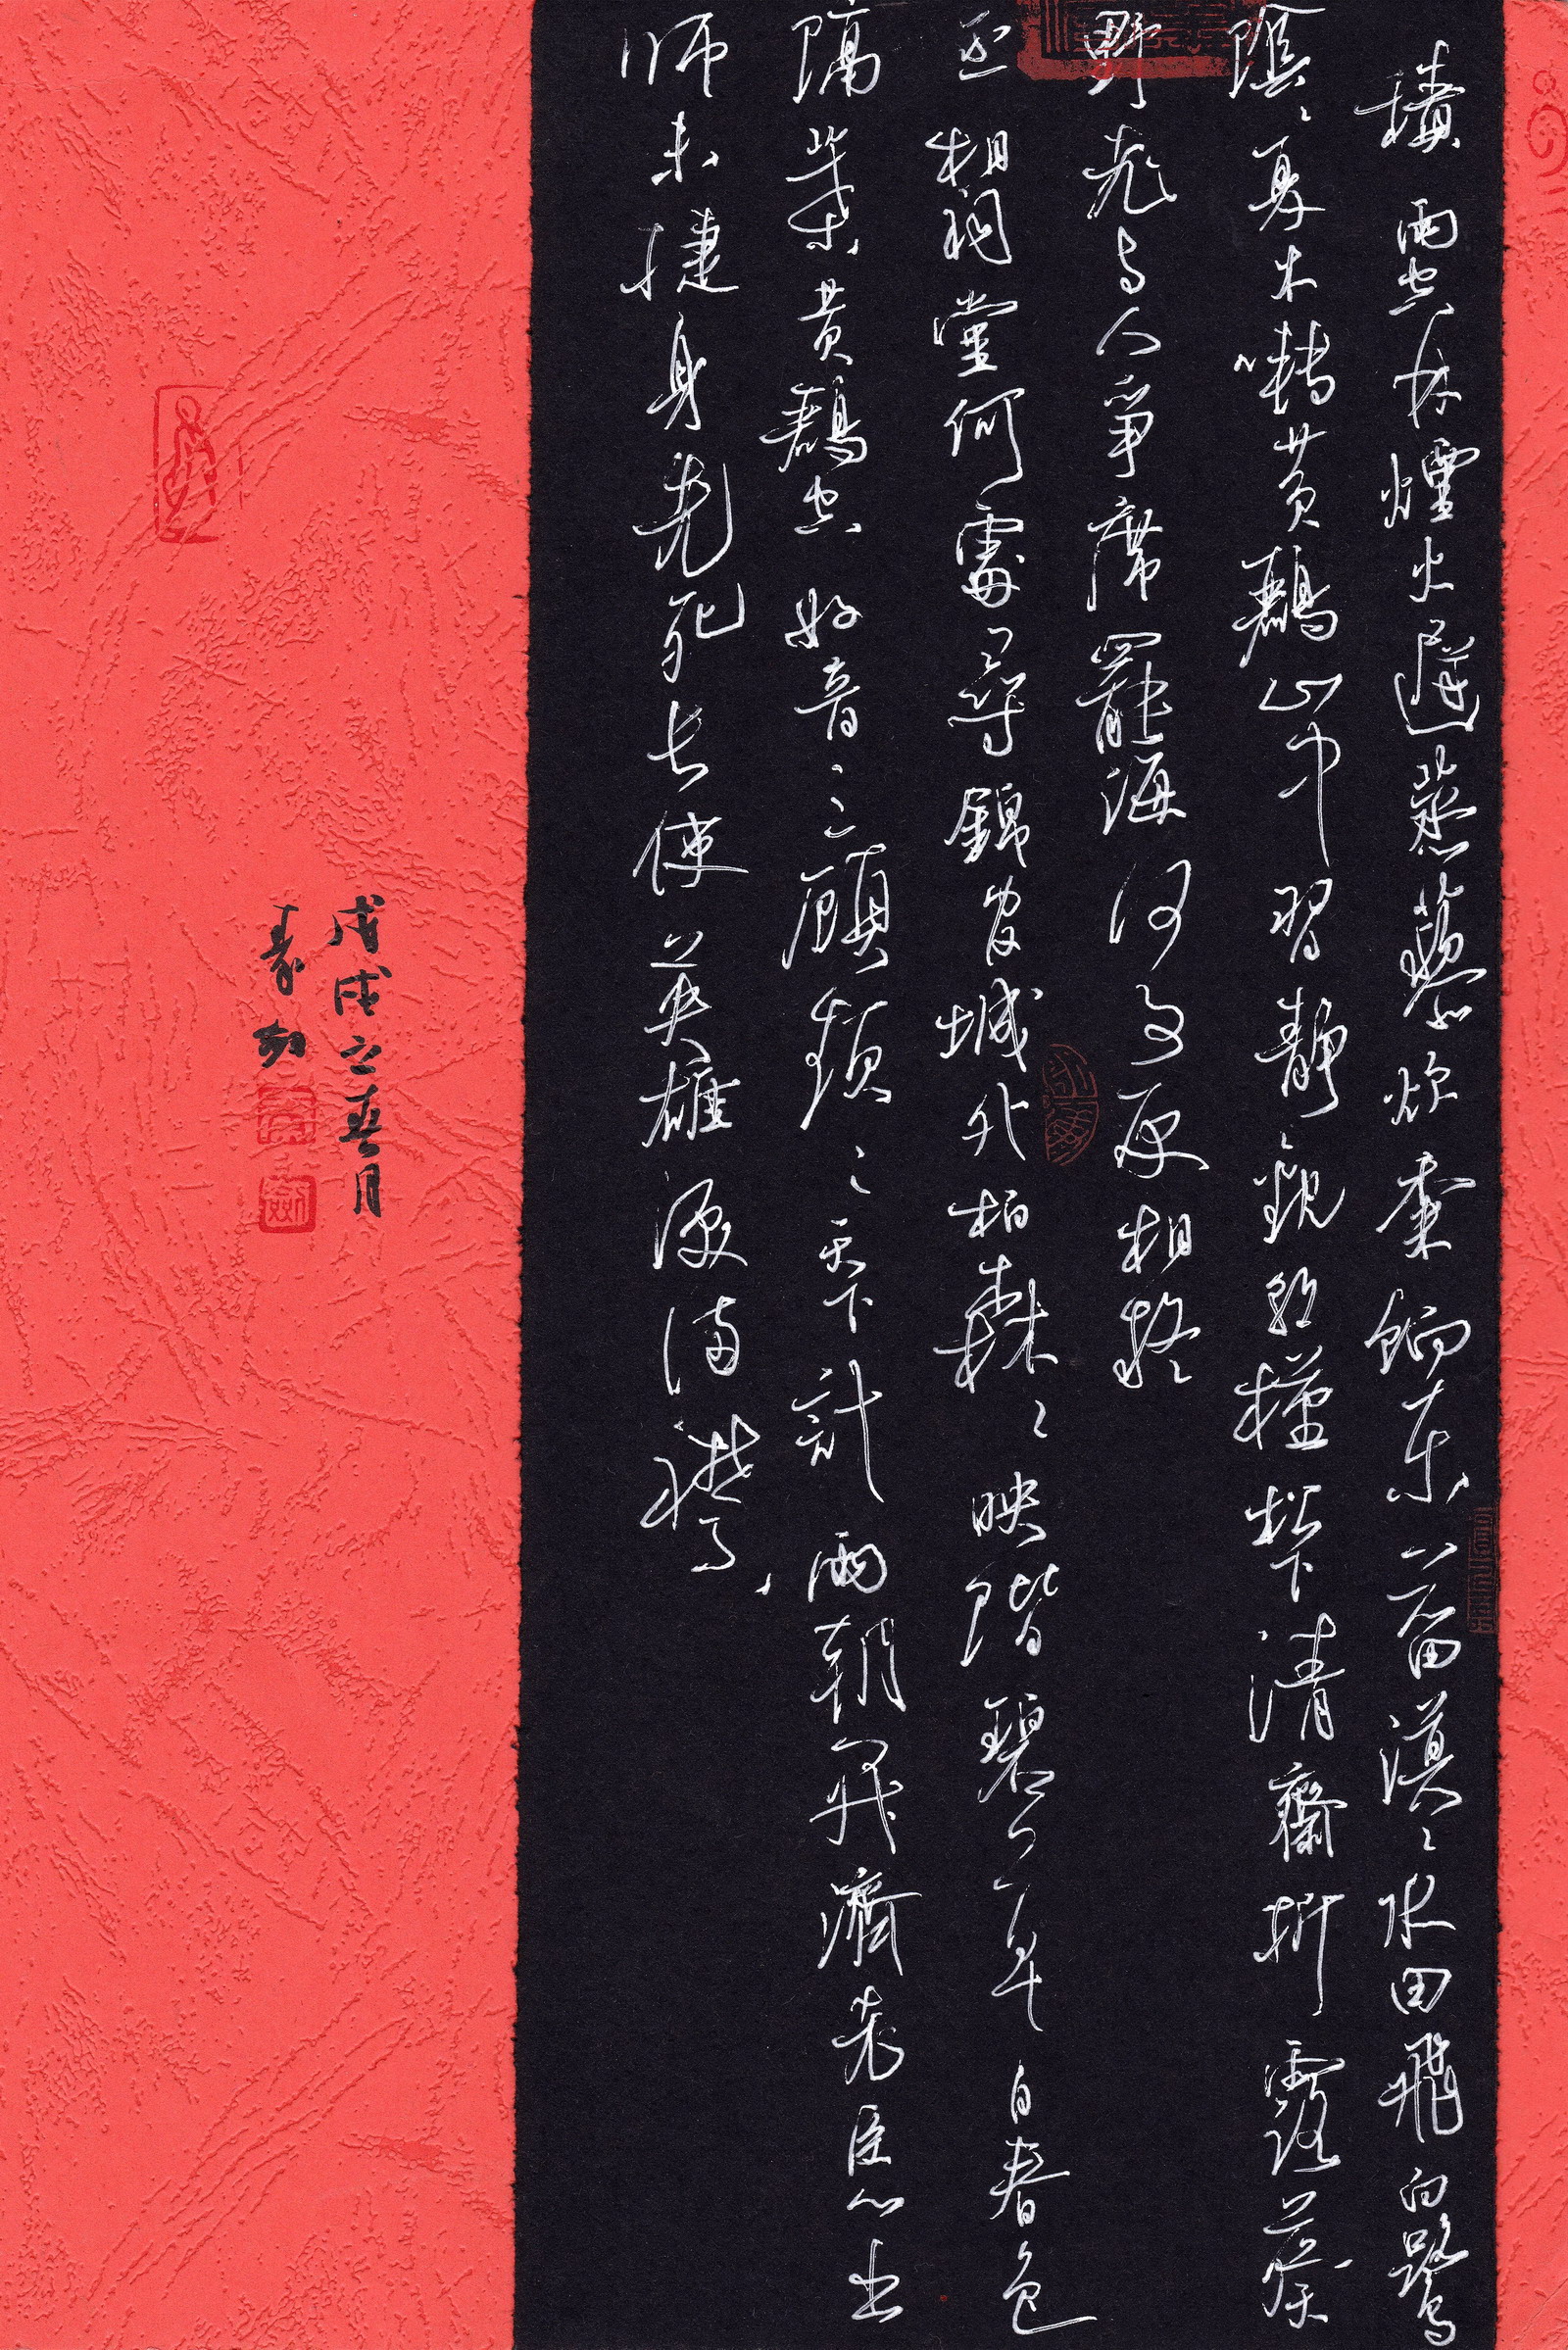 積雨空林煙火遲蒸藜炊黍餉东菑漠〻水田飛白鷺
陰〻夏木囀黃鸝山中習静觀朝槿松下清齋折露葵
野老与人爭席罷海何事更相疑
丞相祠堂何處尋錦官城外柏森〻映階碧草自春色
隔葉黃鸝空好音三顧頻〻天下計兩朝開濟老臣心出
師未捷身先死长使英雄淚满襟
戊戌之春月